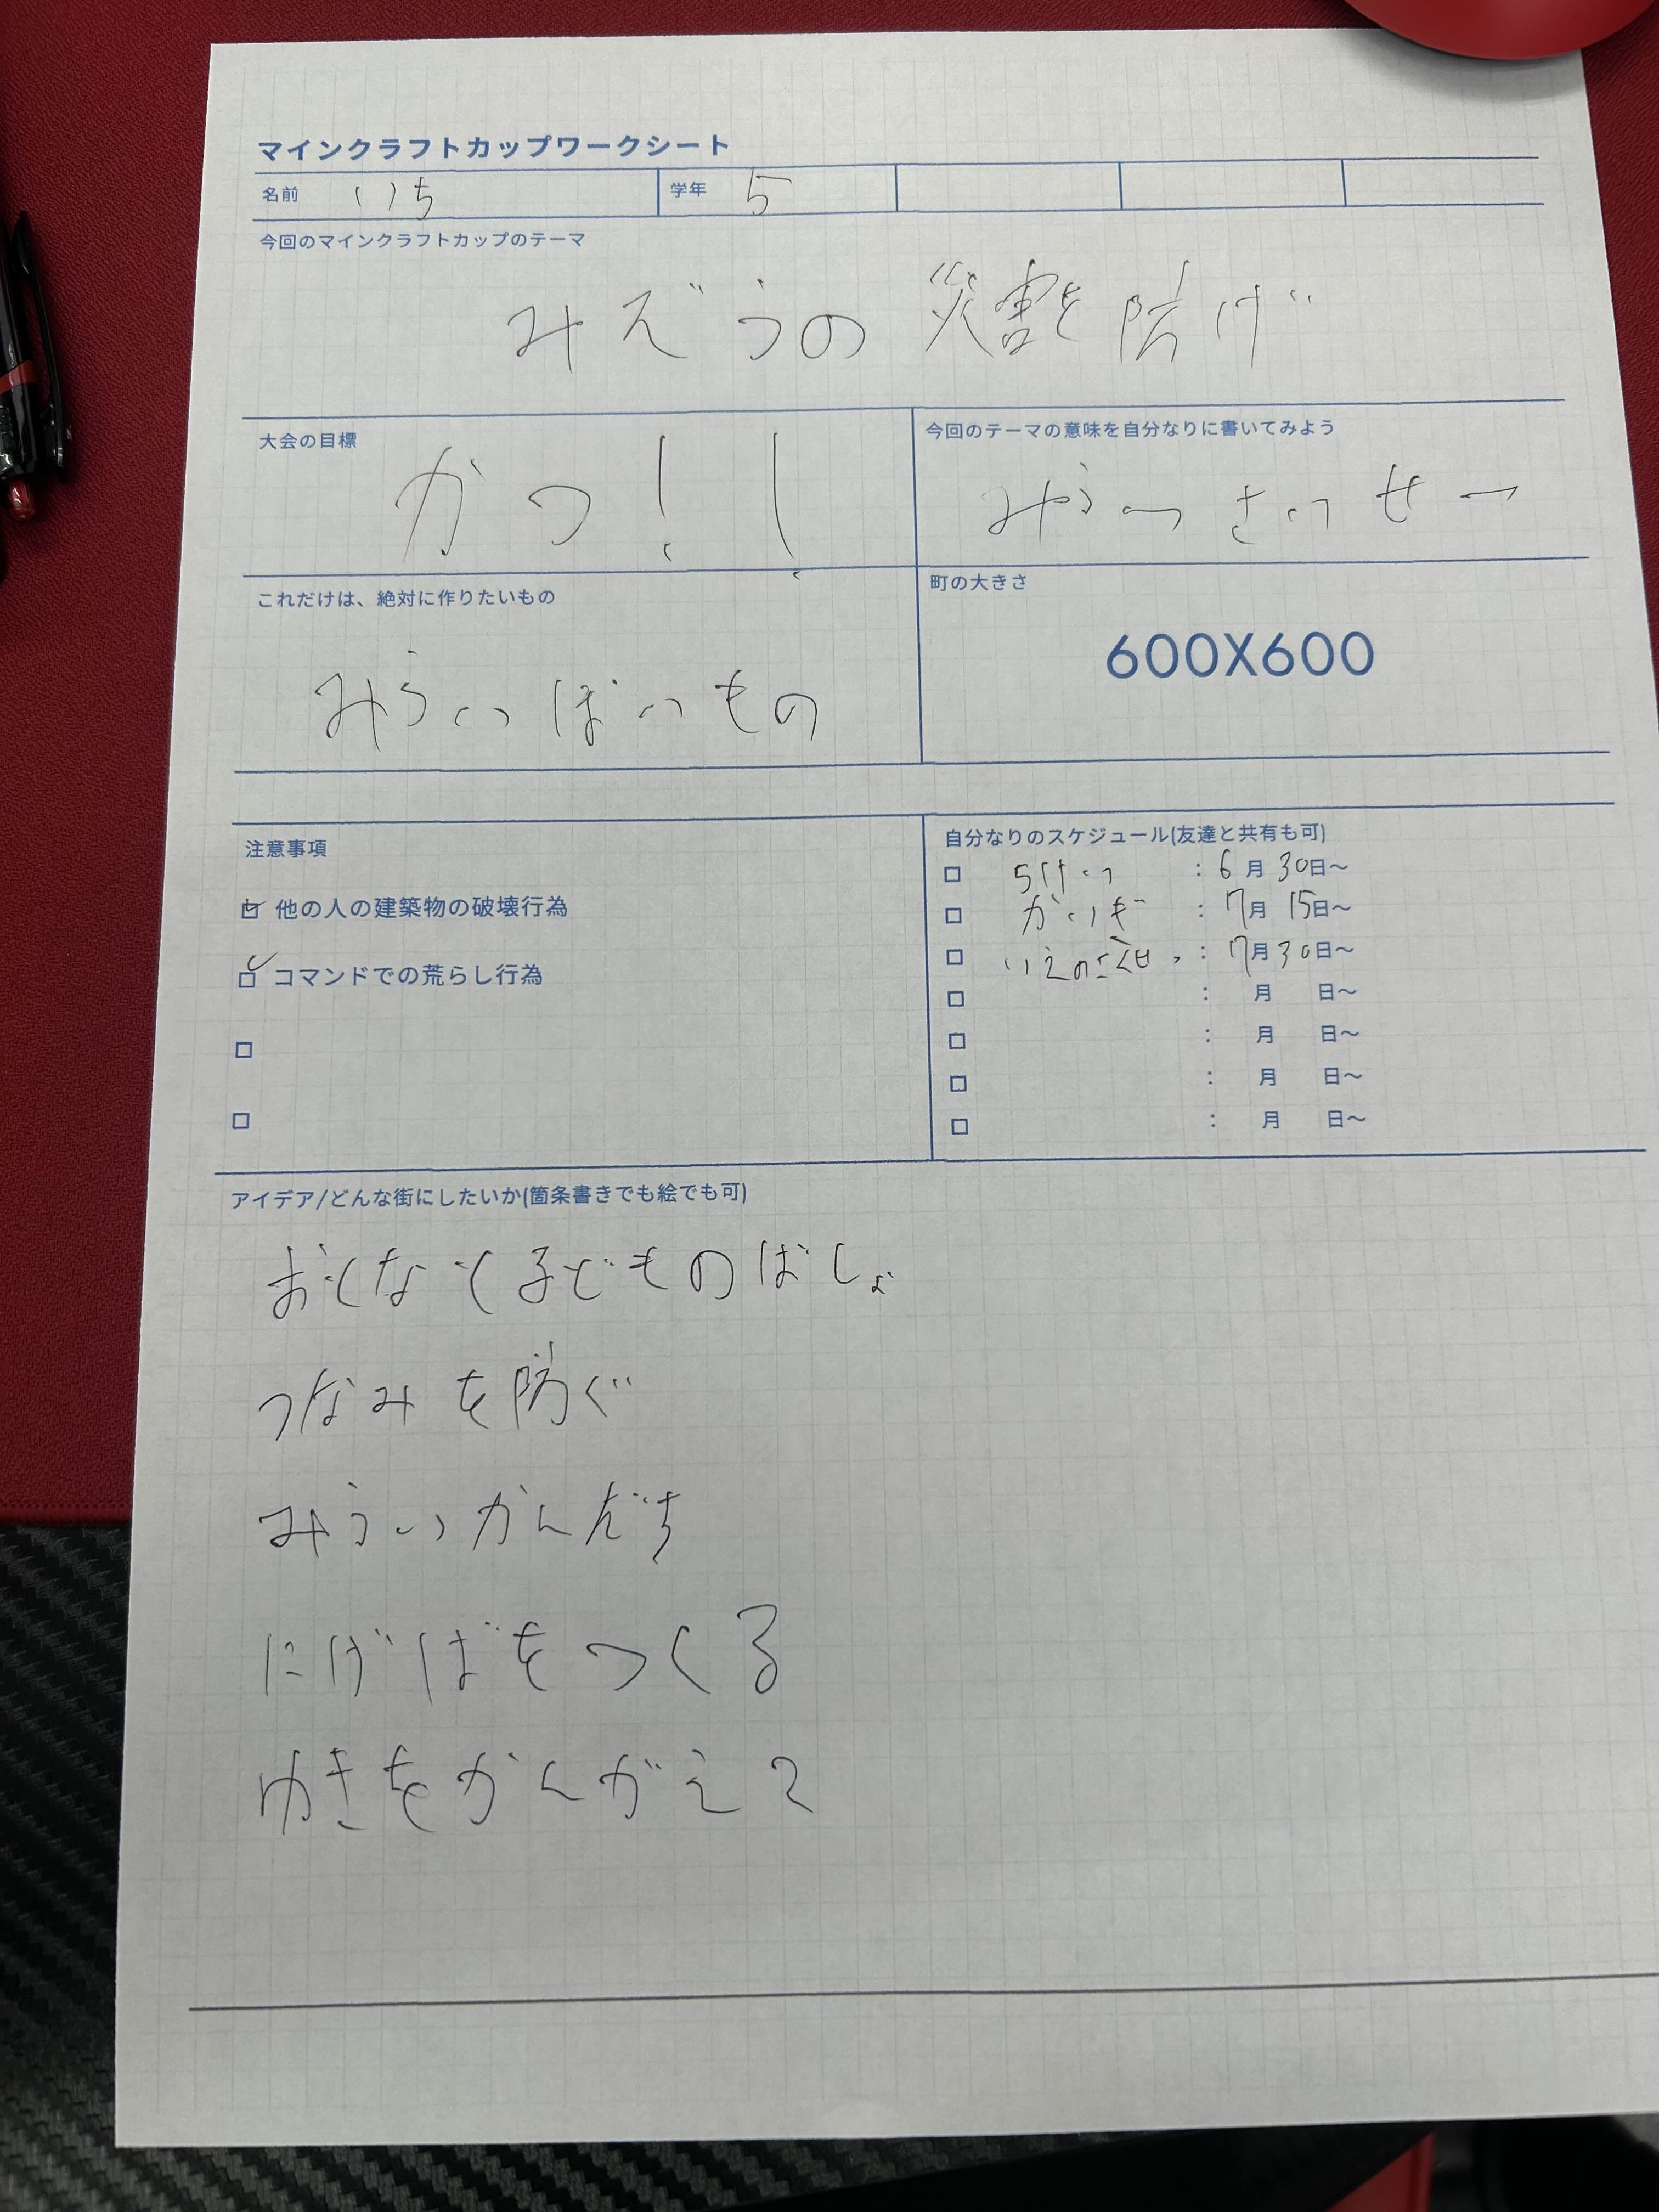 マインクラフトカップワークシート
名前 いち 学年 5
今回のマインクラフトカップのテーマ
みぞうの災害を防げ
大会の目標
かつ!!
今回のテーマの意味を自分なりに書いてみよう
みらい さいせー
これだけは、絶対に作りたいもの
みらいっぽいもの
町の大きさ
600X600
注意事項
他の人の建築物の破壊行為
コマンドでの荒らし行為
自分なりのスケジュール(友達と共有も可)
:6月30日〜
:7月15日〜
:7月30日〜
: 月 日〜
: 月 日〜
: 月 日〜
: 月 日〜
アイデア/どんな街にしたいか(箇条書きでも絵でも可)
おとなと子どものばしょ
つなみを防ぐ
みらいかんだち
にげばをつくる
ゆきをかんがえて